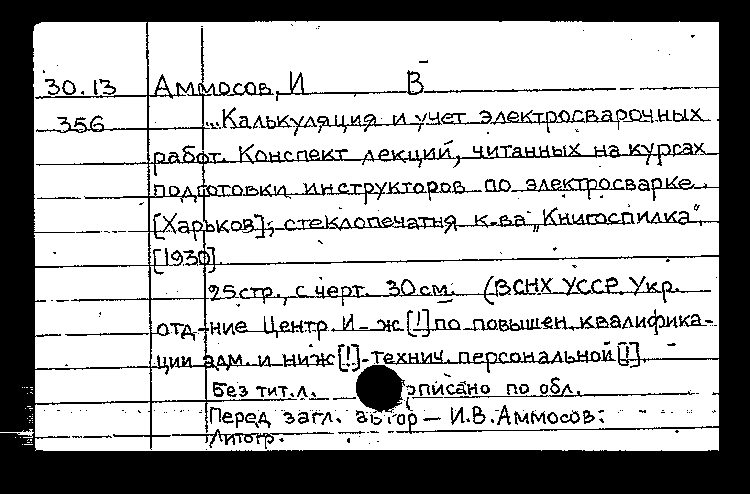 30.13 Аммосов, И В
356 „Калькуляция и учет электросварочных
работ. Конспект лекций, читанных на курсах
подготовки инструкторов по электросварке.
[Харьков]; стеклопечатня к-ва „Книгоспилка“,
[1930].
25 стр., с черт. 30 см. (ВСНХ УССР. Укр.
отд-ние Центр. И-ж[!] по повышен. квалифика-
ции адм. и ниж[!]-технич. персональной[!].
Без тит. л. по обл.
Перед загл. автор — И.В. Аммосов.
Литогр.